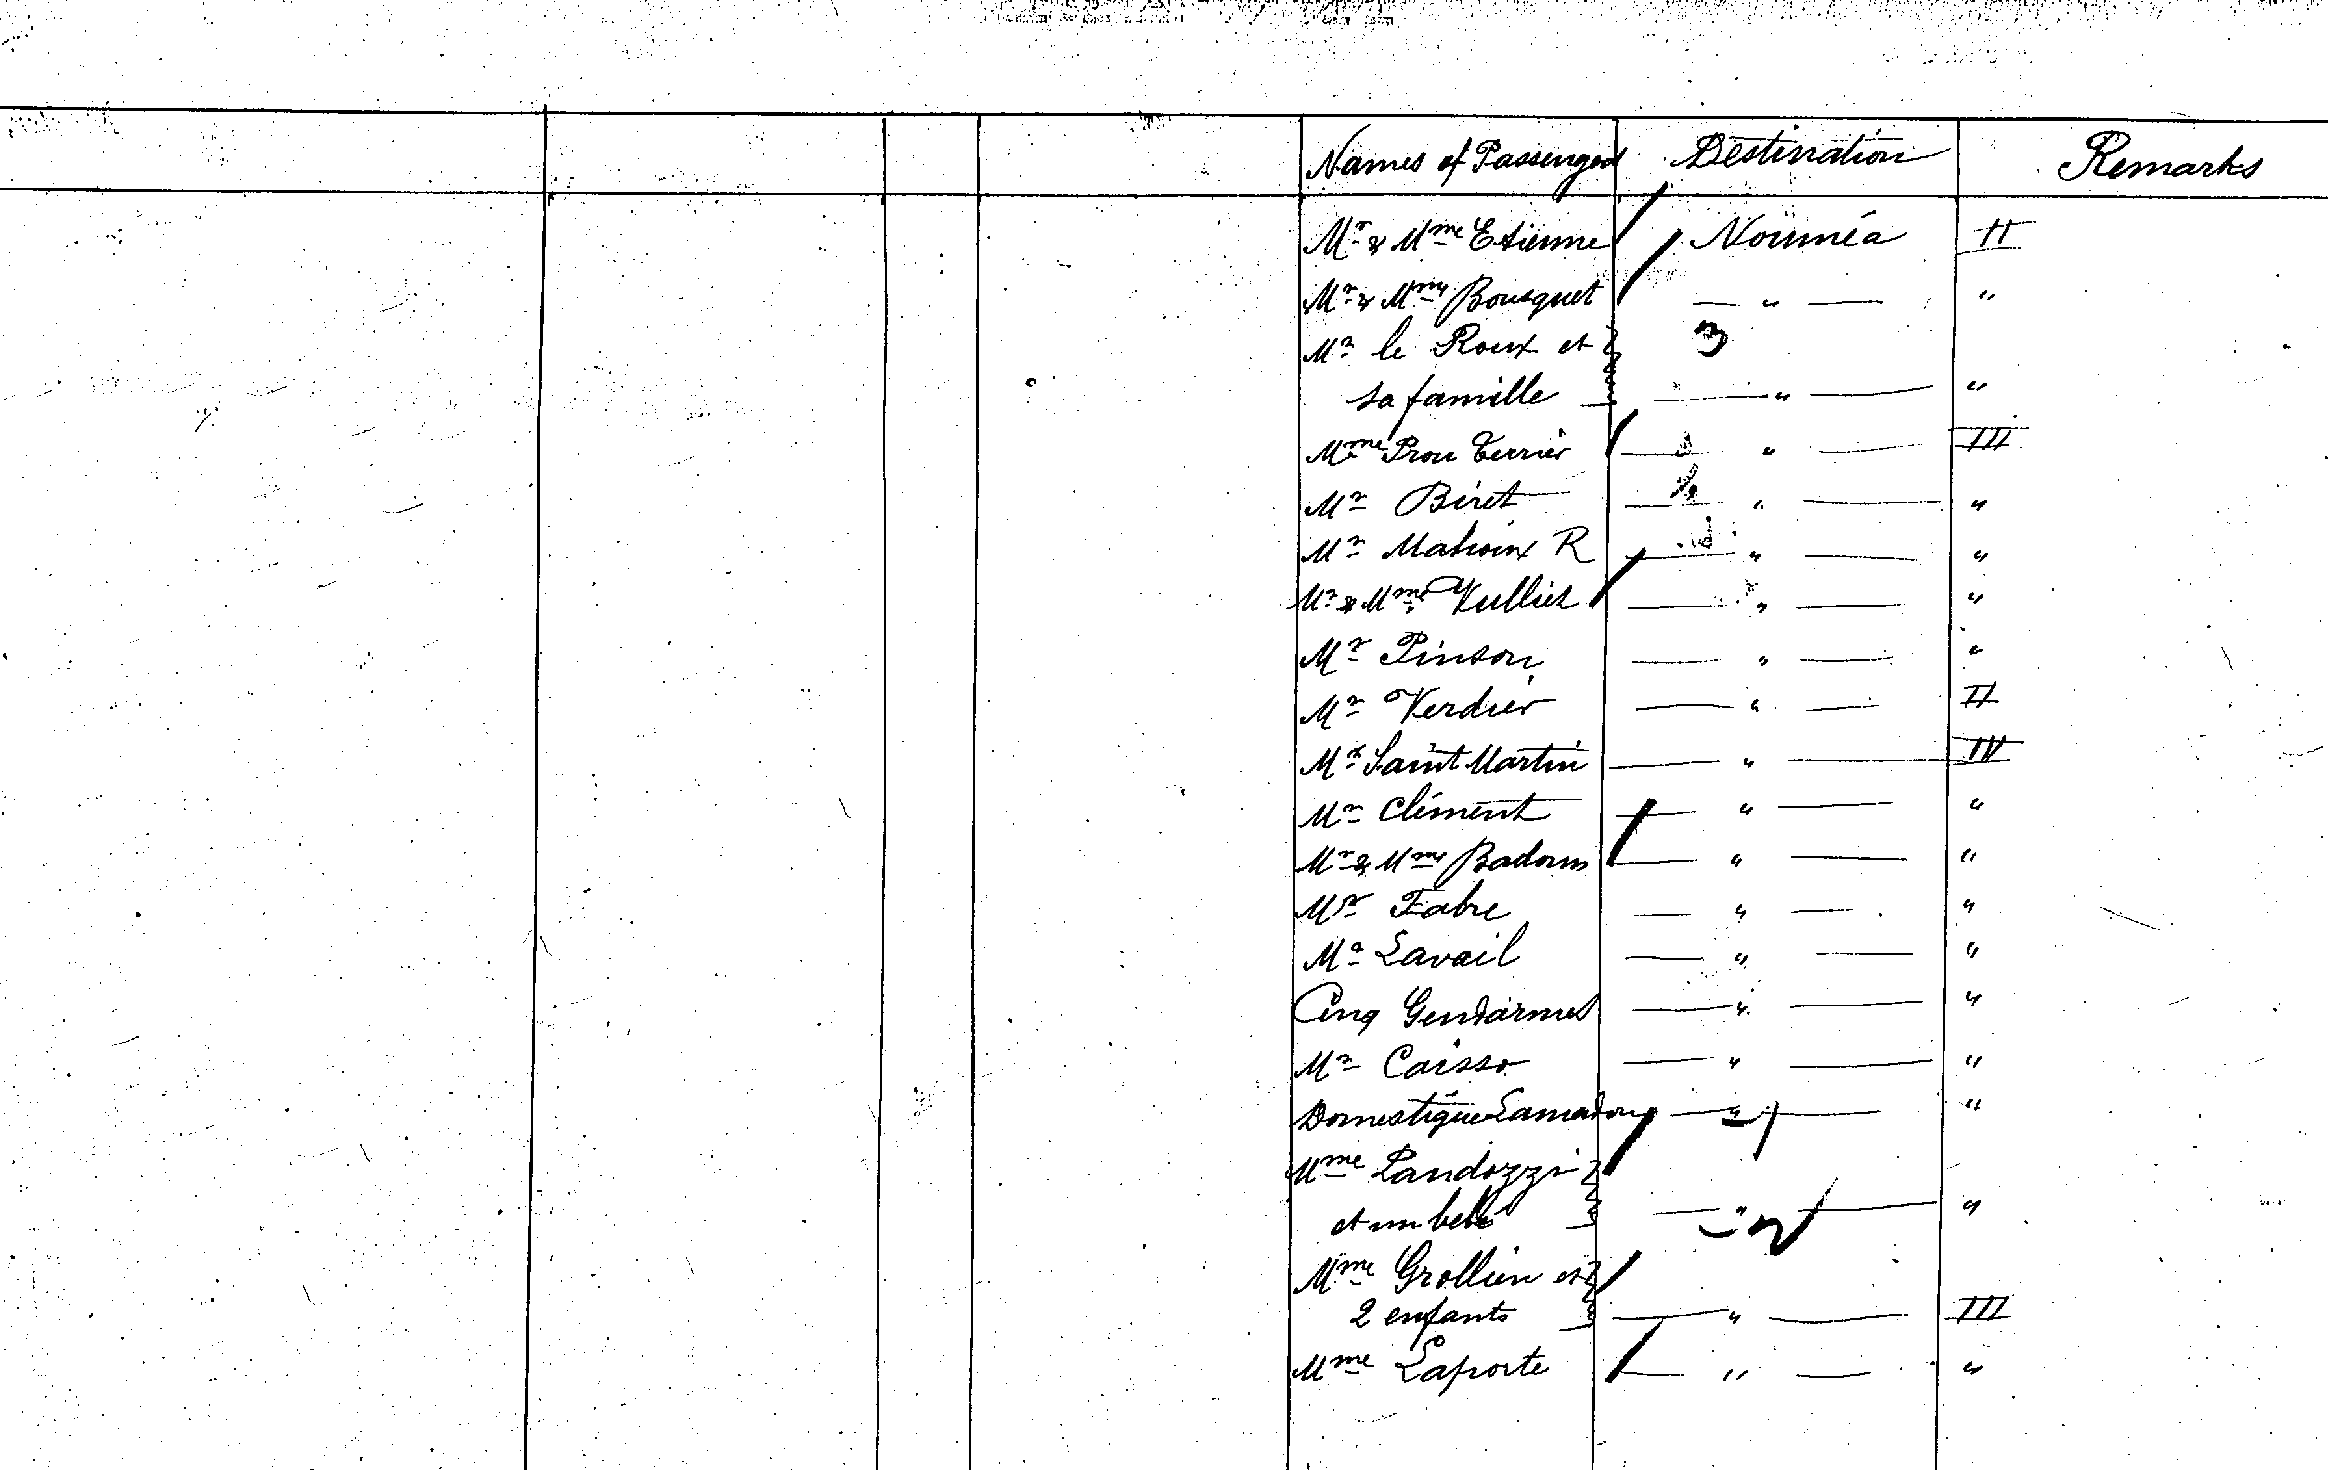 Names of Passengers Destination Remarks
Mr & Mme Etienne Nouméa II
Mr & Mme Bousquet — " — "
Mr le Roux et 3
sa famille — " — "
Mme Prou Terrier — " — III
Mr Biret — " — "
Mr R — " — "
Mr & Mme Vulliet — " — "
Mr Pinson — " — "
Mr Verdier — " — II
Mr Saint Martin — " — IV
Mr Clément — " — "
Mr & Mme — " — "
Mr Fabre — " — "
Mr Lavail — " — "
Cinq Gendarmes — " — "
Mr Caisso — " — "
Domestique — " — "
Mme Landozzi
et un bebé — " — "
Mme Grollien et
2 enfants — " — III
Mme Laporte — " — "